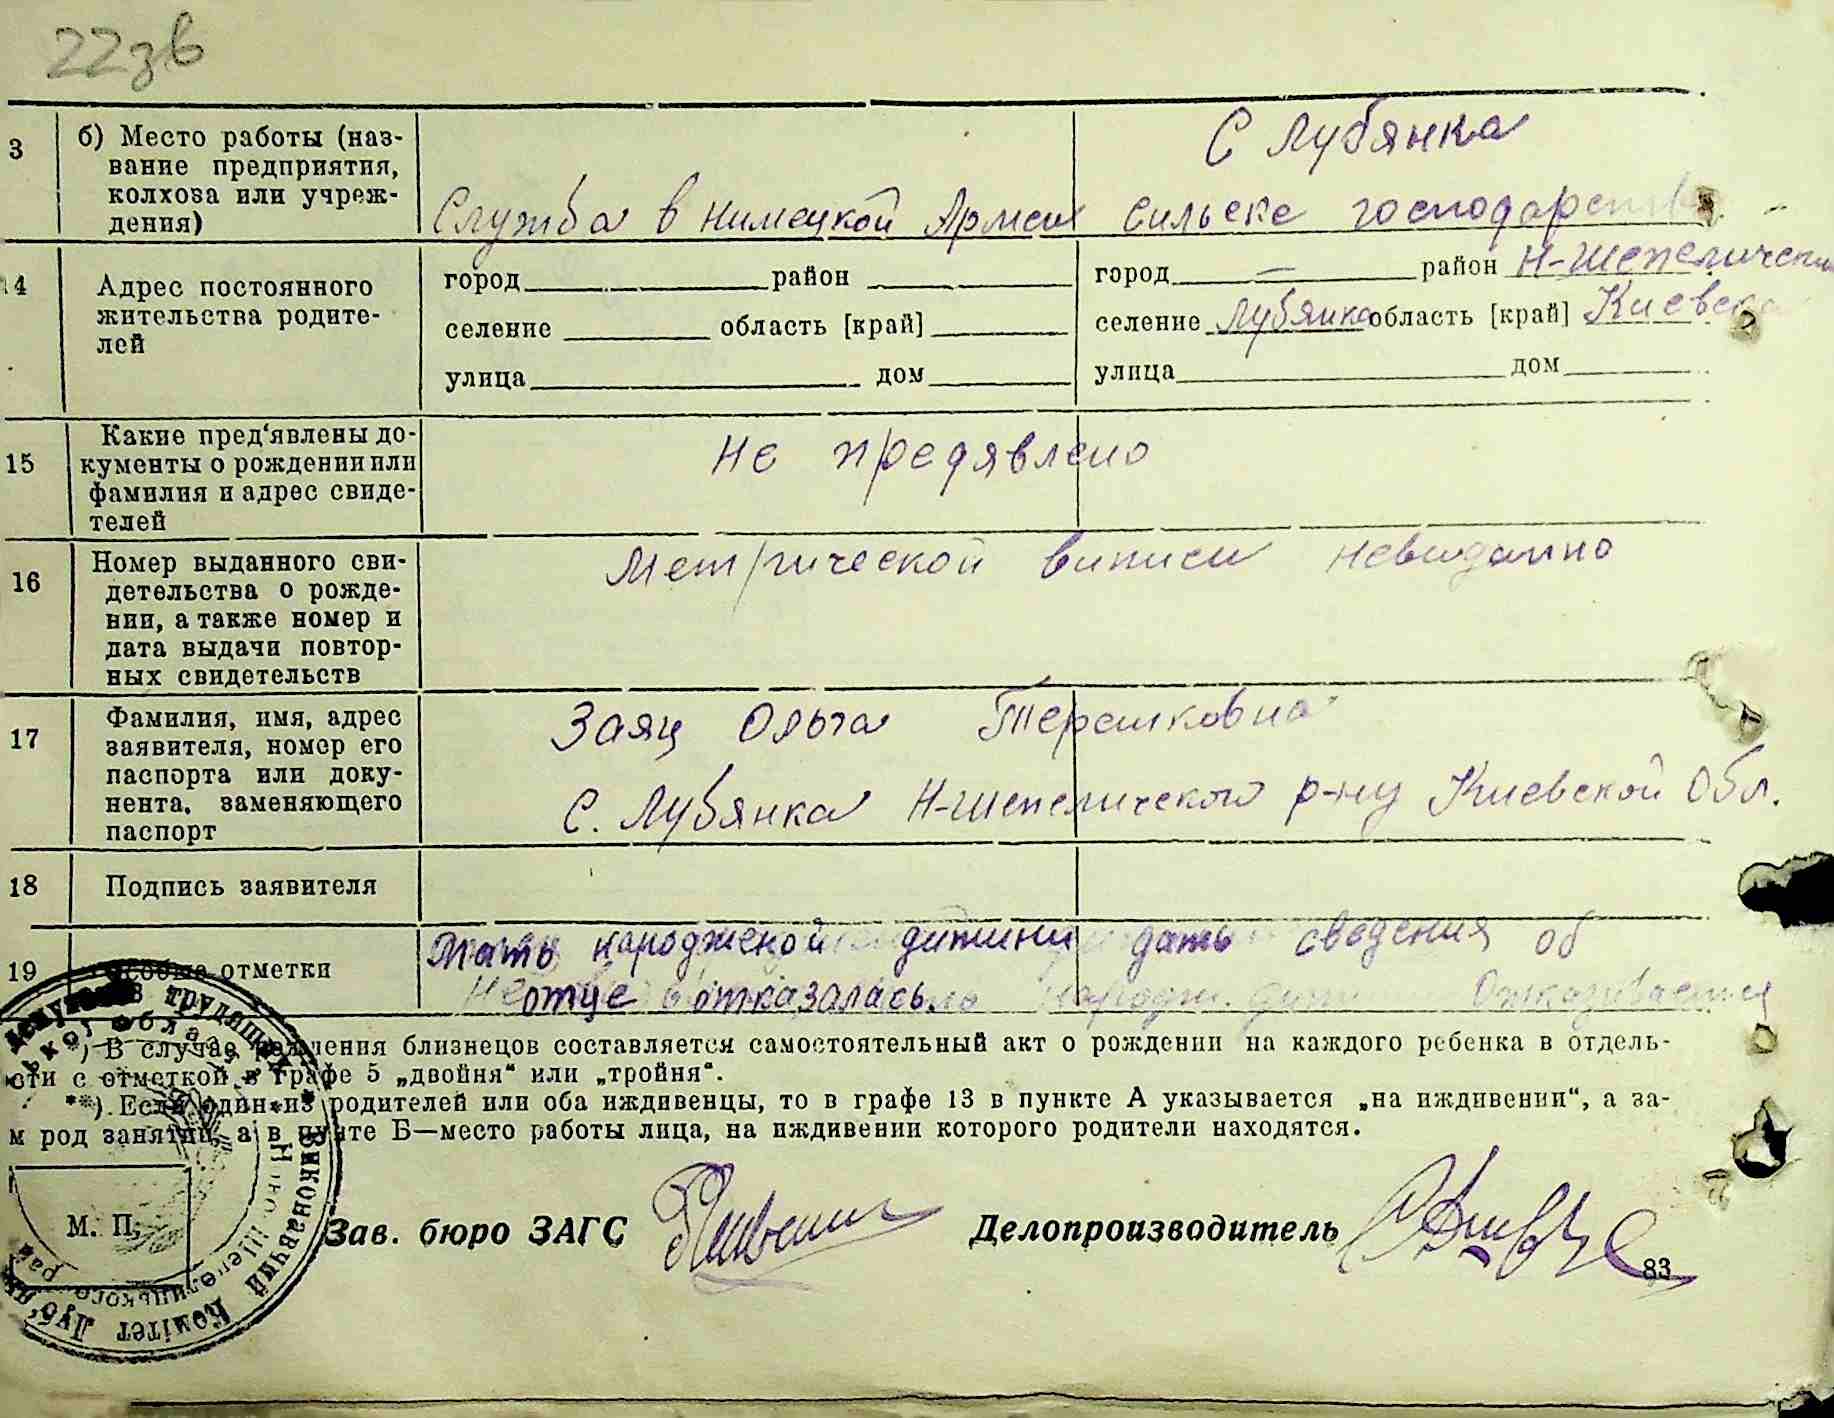 22зв
3 б) Место работы (наз-
вание предприятия,
колхоза или учреж-
дения)
Служба в нимецкой Армеи
С Лубянка
сильске господарство
14 Адрес постоянного
жительства родите-
лей
город район
селение область [край]
улица дом
город — район Н-Шепелически
селение Лубянка область [край] Киевска
улица дом
15 Какие пред'явлены до-
кументы о рождении или
фамилия и адрес свиде-
телей
Не предявлено
16 Номер выданного сви-
детельства о рожде-
нии, а также номер и
дата выдачи повтор-
ных свидетельств
Метрической виписи невиданно
17 Фамилия, имя, адрес
заявителя, номер его
паспорта или доку-
нента, заменяющего
паспорт
Заяц Ольга Терешковна
С. Лубянка Н-Шепелического р-ну Киевской Обл.
18 Подпись заявителя
19 Особые отметки
Мать народженой дитини дать сведения об
отце отказалась. Отказивается
*) В случае рождения близнецов составляется самостоятельный акт о рождении на каждого ребенка в отдель-
сти с отметкой в графе 5 „двойня“ или „тройня“.
**) Если один из родителей или оба иждивенцы, то в графе 13 в пункте А указывается „на иждивении“, а за-
м род занятий, а в пункте Б—место работы лица, на иждивении которого родители находятся.
М. П.
Зав. бюро ЗАГС
Делопроизводитель
83
депутатів трудящих
Виконавчий Комітет Луб'ян
ської області
Ново-Шепелицького рай